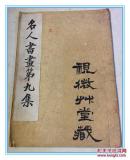 名人書畫第九集
視微艸堂藏